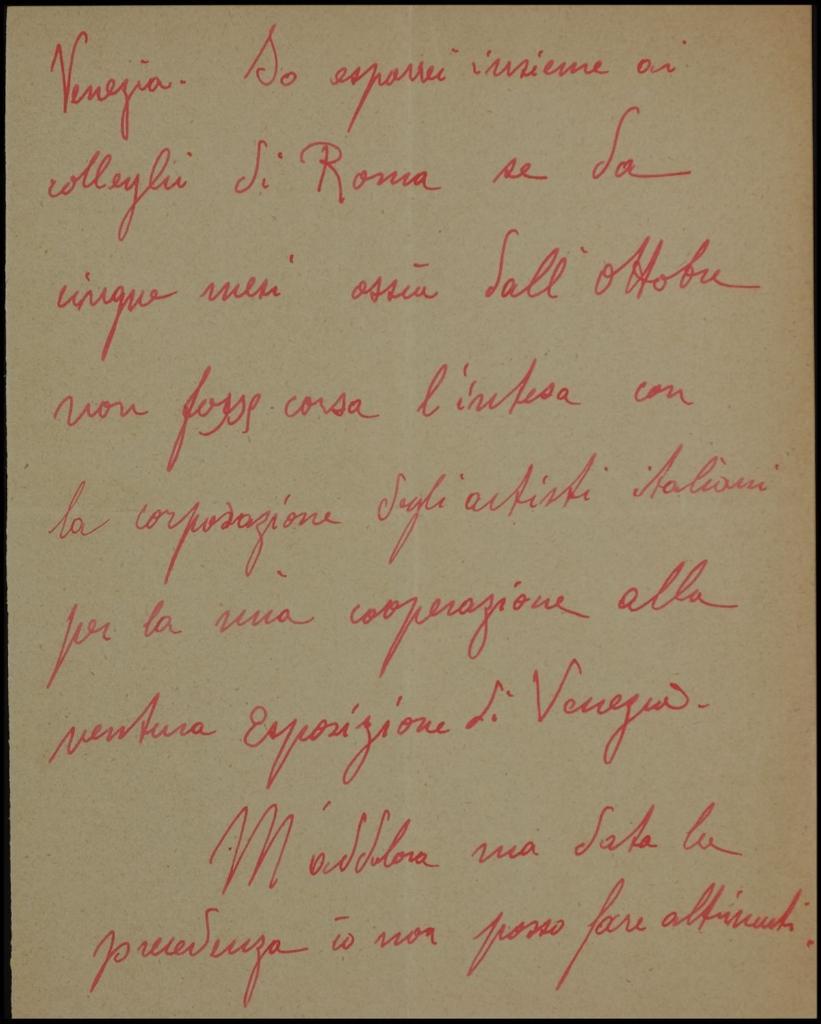 Venezia. Io esporrei insieme ai
colleghi di Roma se da
cinque mesi ossia dall'ottobre
non fosse corsa l'intesa con
la corporazione degli artisti italiani
per la mia cooperazione alla
ventura Esposizione di Venezia.
M'addolora ma data la
precedenza io non posso fare altrimenti.